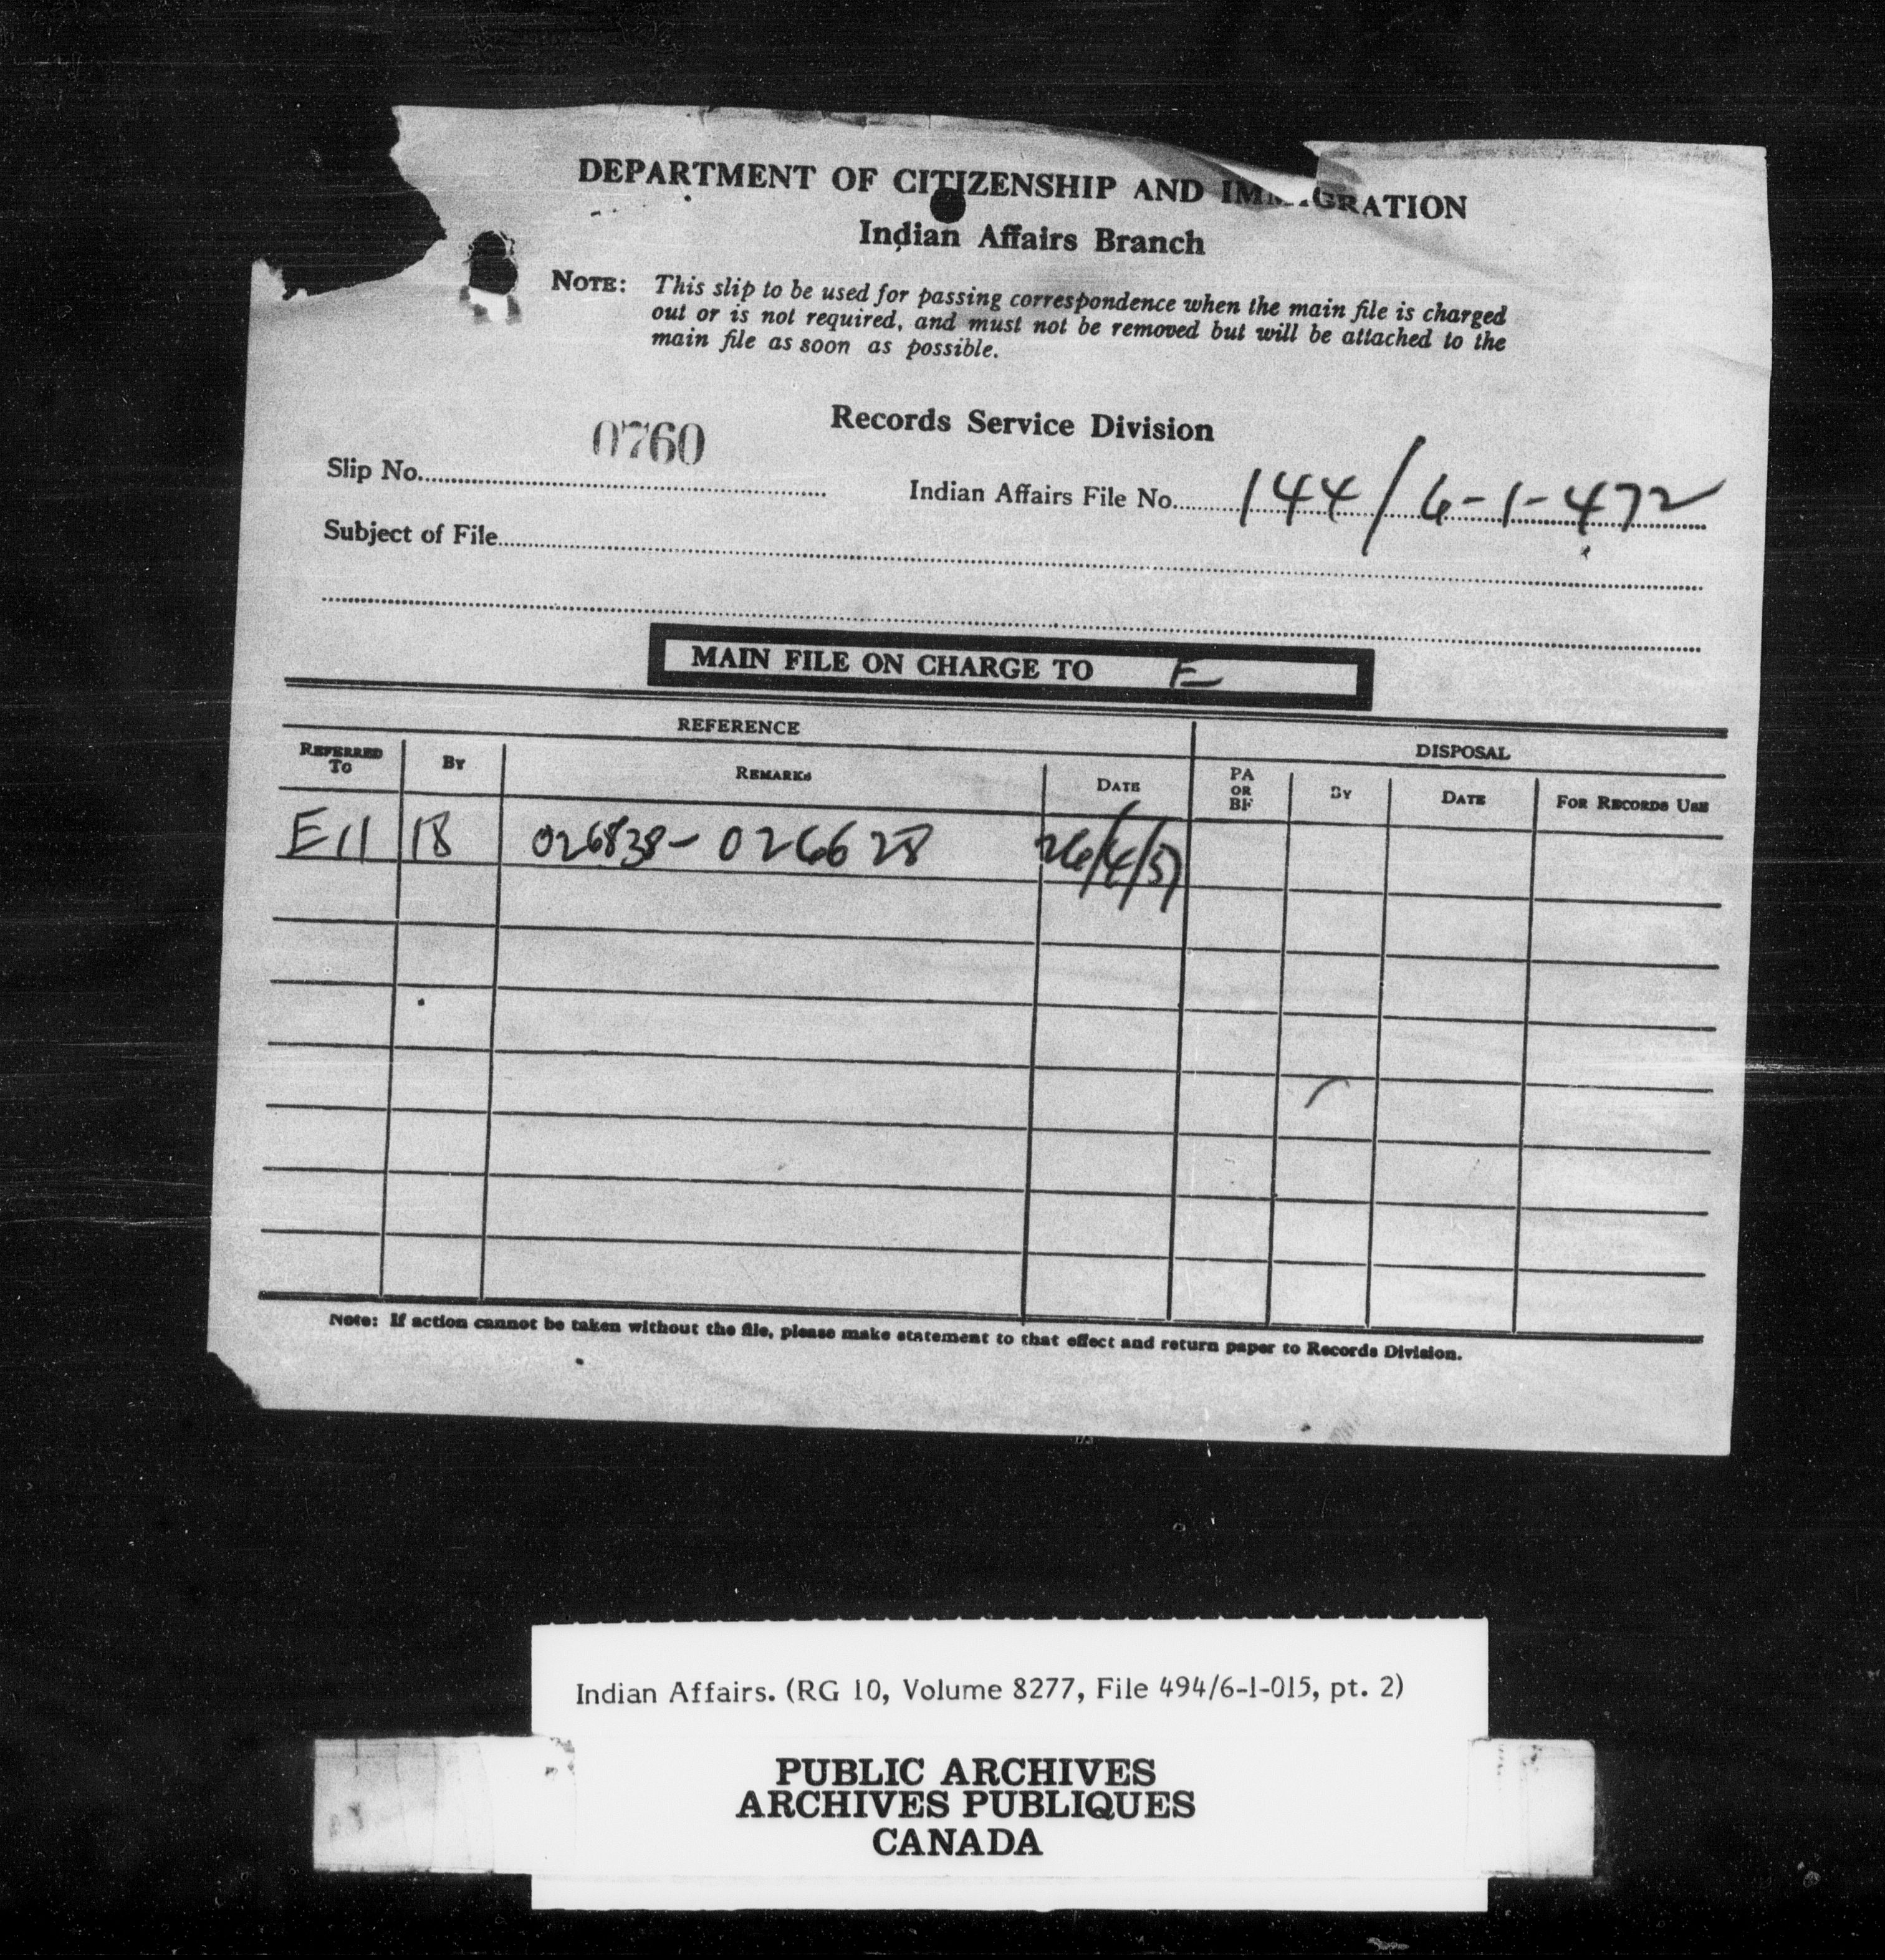 DEPARTMENT OF CITIZENSHIP AND IMMIGRATION
Indian Affairs Branch
NOTE: This slip to be used for passing correspondence when the main file is charged
out or is not required, and must not be removed but will be attached to the
main file as soon as possible.
Records Service Division
Slip No. 0760
Indian Affairs File No. 144/6-1-472
Subject of File
MAIN FILE ON CHARGE TO E
REFERENCE DISPOSAL
REFERRED TO BY REMARKS DATE PA OR BF BY DATE FOR RECORDS USE
E11 18 026838-026628 26/4/57
Note: If action cannot be taken without the file, please make statement to that effect and return paper to Records Division.
Indian Affairs. (RG 10, Volume 8277, File 494/6-1-015, pt. 2)
PUBLIC ARCHIVES
ARCHIVES PUBLIQUES
CANADA